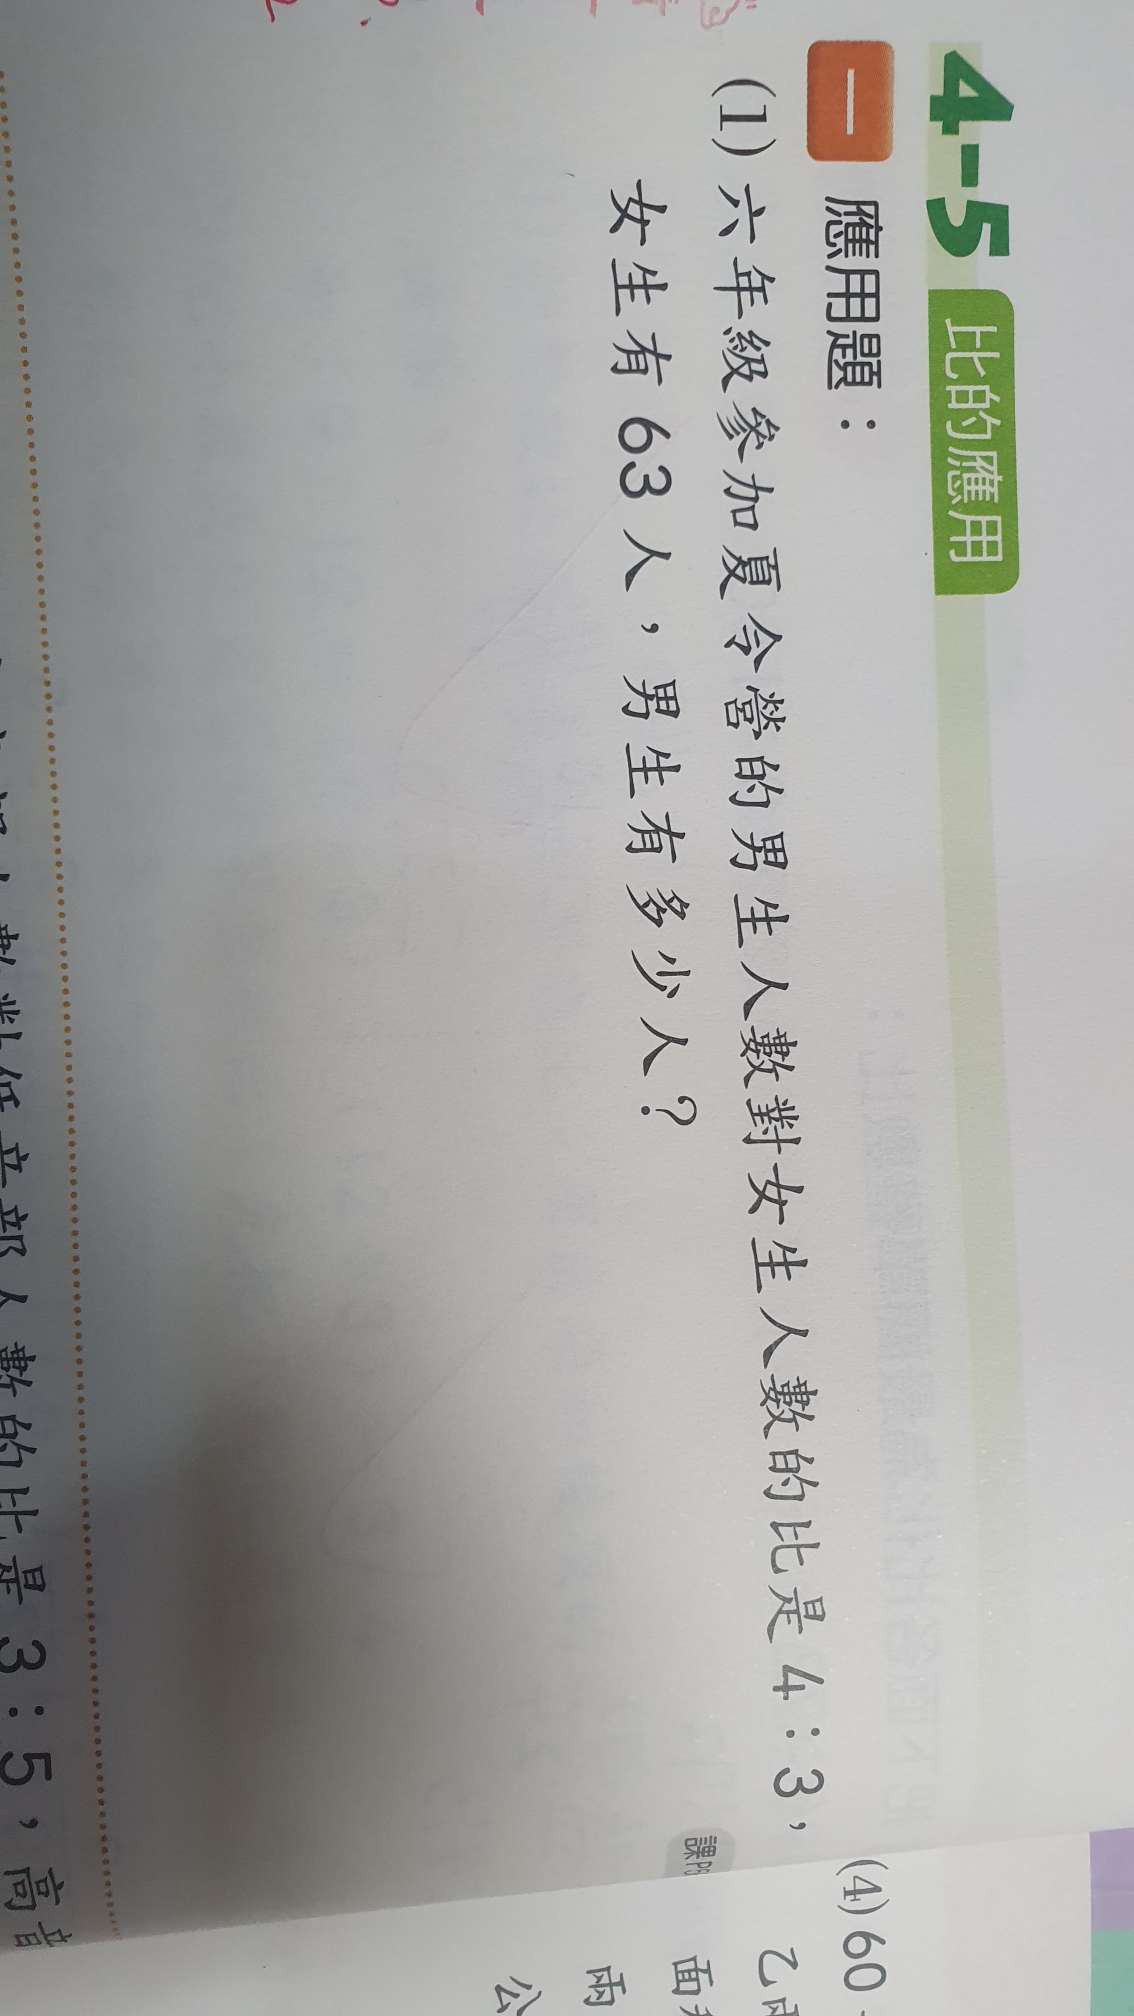 4-5 比的應用
一 應用題：
(1) 六年級參加夏令營的男生人數對女生人數的比是 4：3，
女生有 63 人，男生有多少人？
部人數的比是 3：5，高音
課
(4) 60
乙
面
雨
公